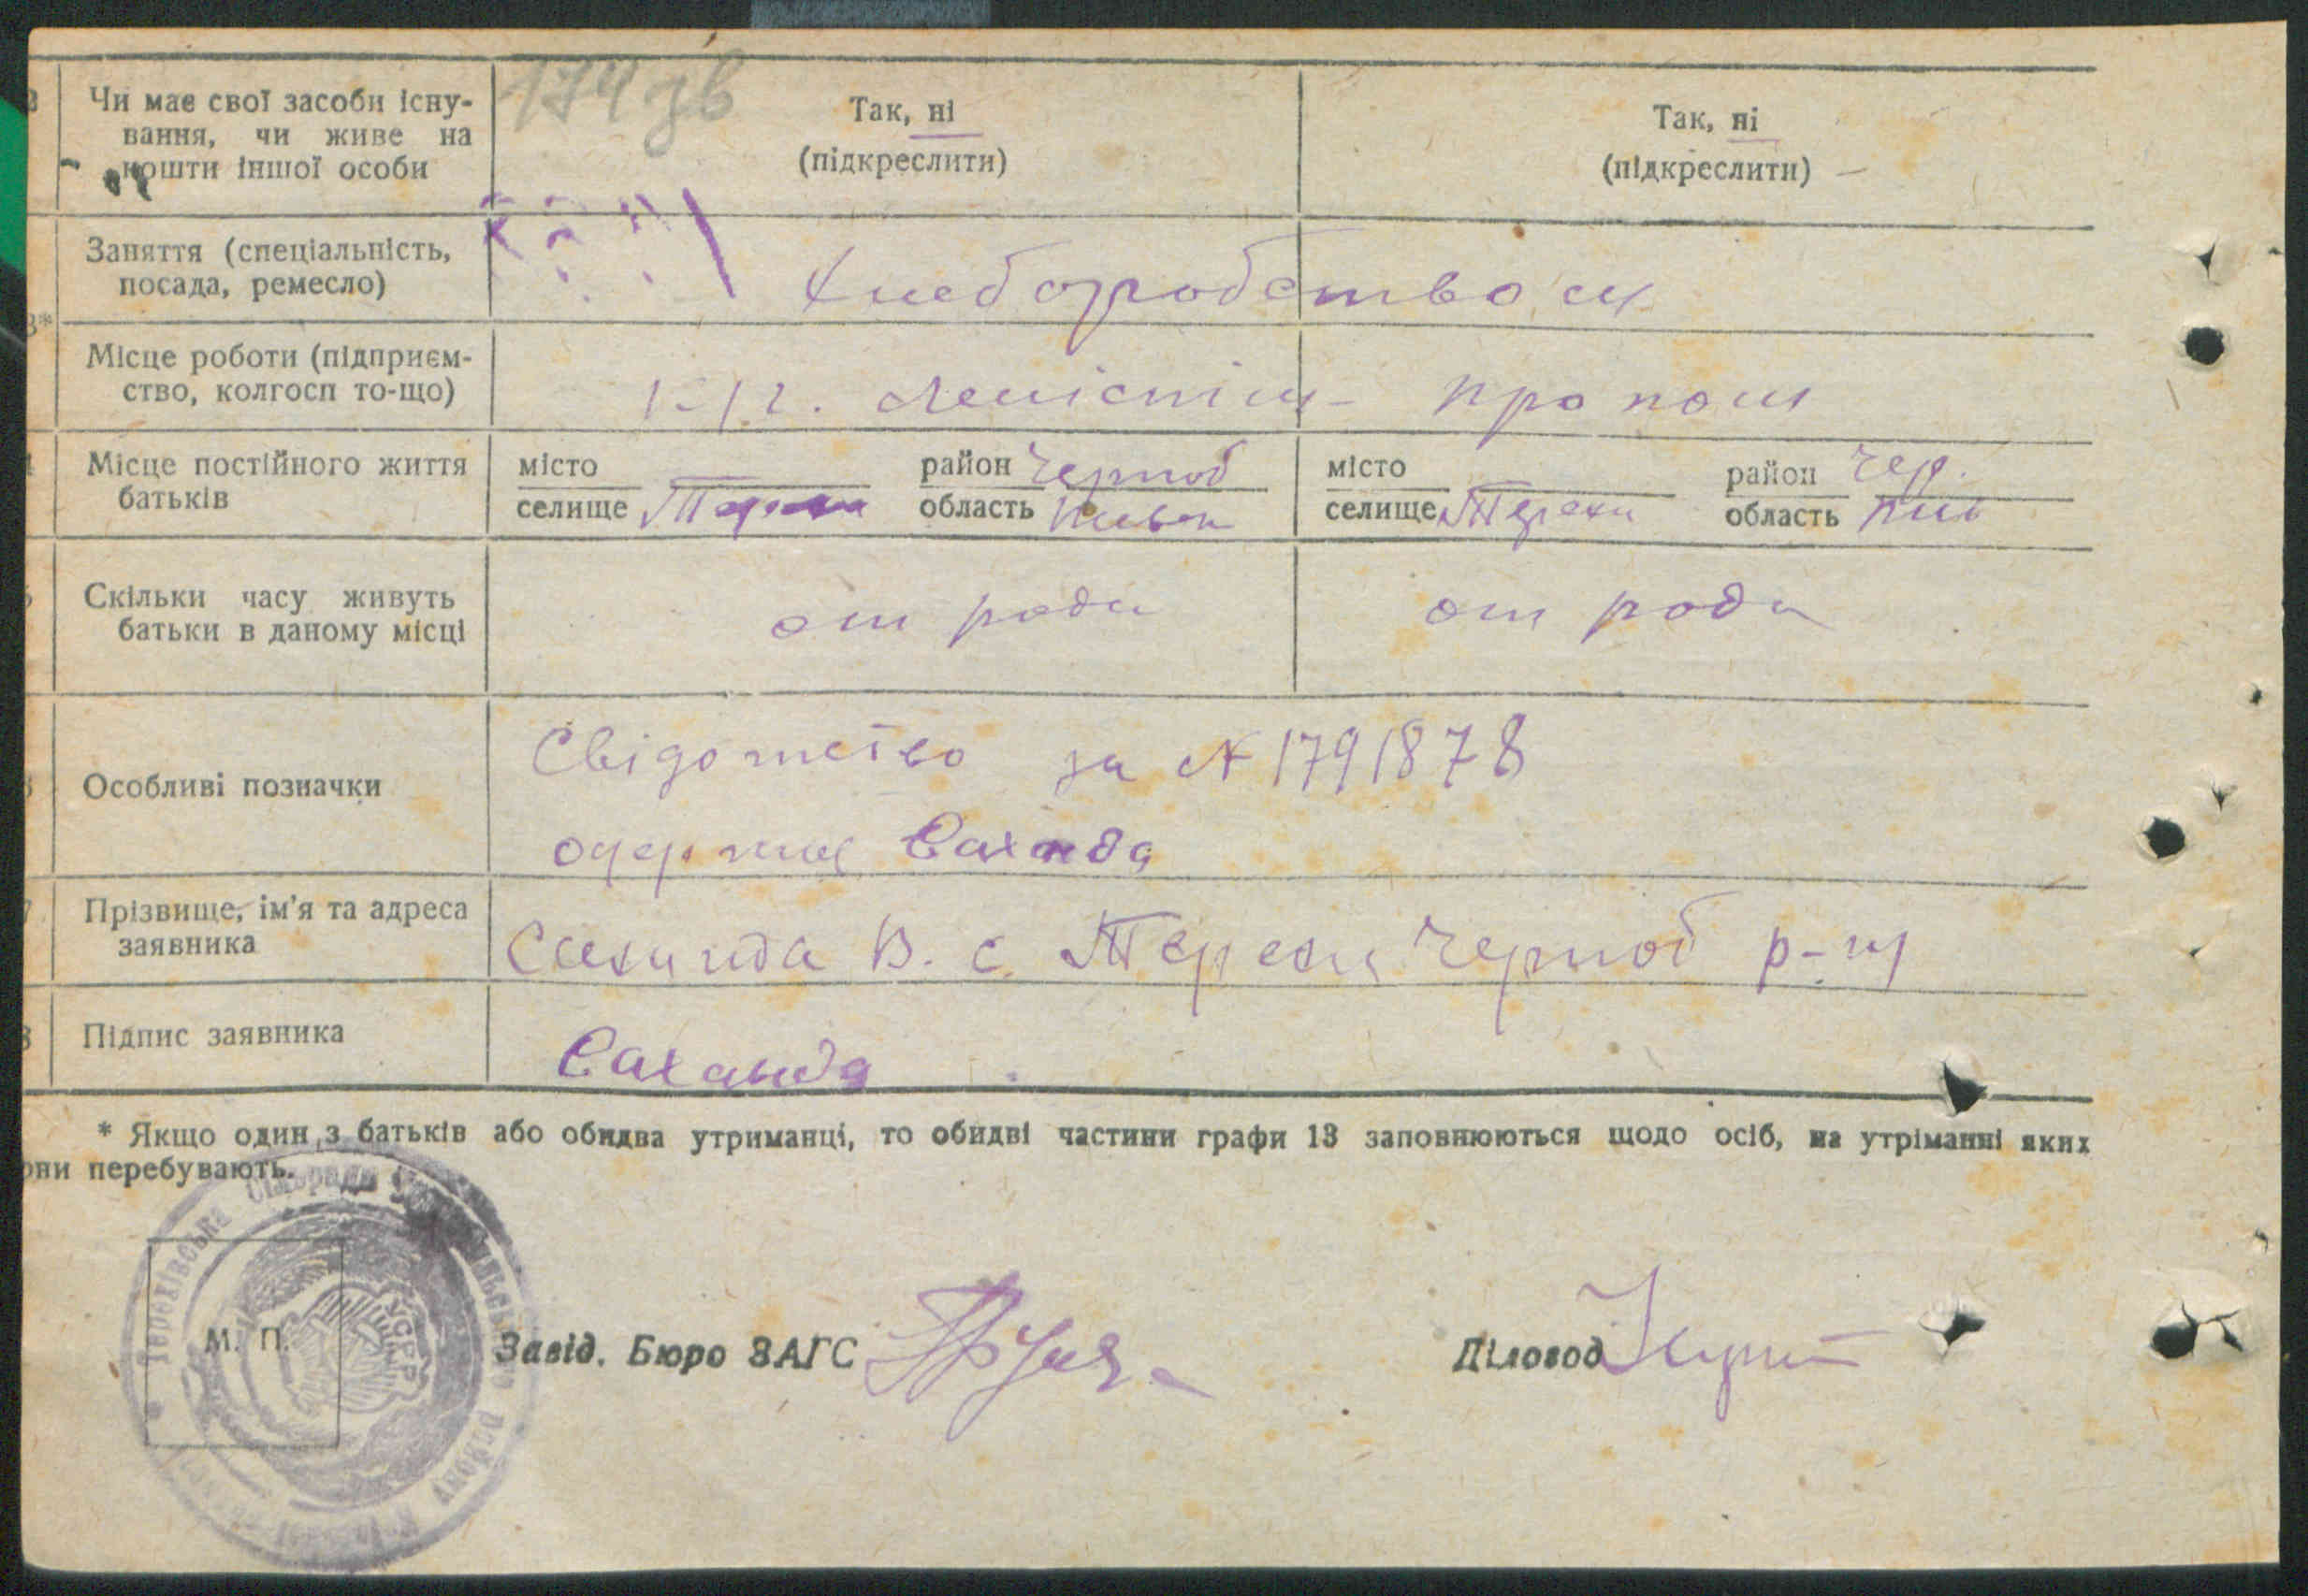 174 зв
Чи має свої засоби існу-
вання, чи живе на
кошти іншої особи
Так, ні
(підкреслити)
Так, ні
(підкреслити)
Заняття (спеціальність,
посада, ремесло)
Хлеборобством
3*
Місце роботи (підприєм-
ство, колгосп то-що)
к/г.
Місце постійного життя
батьків
місто
селище Терехи
район Черноб
область Київск
місто
селище Терехи
район Чер.
область Київ
Скільки часу живуть
батьки в даному місці
от рода
от рода
Особливі позначки
Свідотство за № 1791878
одержив Саханда
Прізвище, ім'я та адреса
заявника
Саханда В. с. Терехи Черноб р-ну
Підпис заявника
Саханда
* Якщо один з батьків або обидва утриманці, то обидві частини графи 13 заповнюються щодо осіб, на утріманні яких
они перебувають.
Терехівська Сільрада
Району
УСРР
М. П.
Завід. Бюро ЗАГС
Діловод